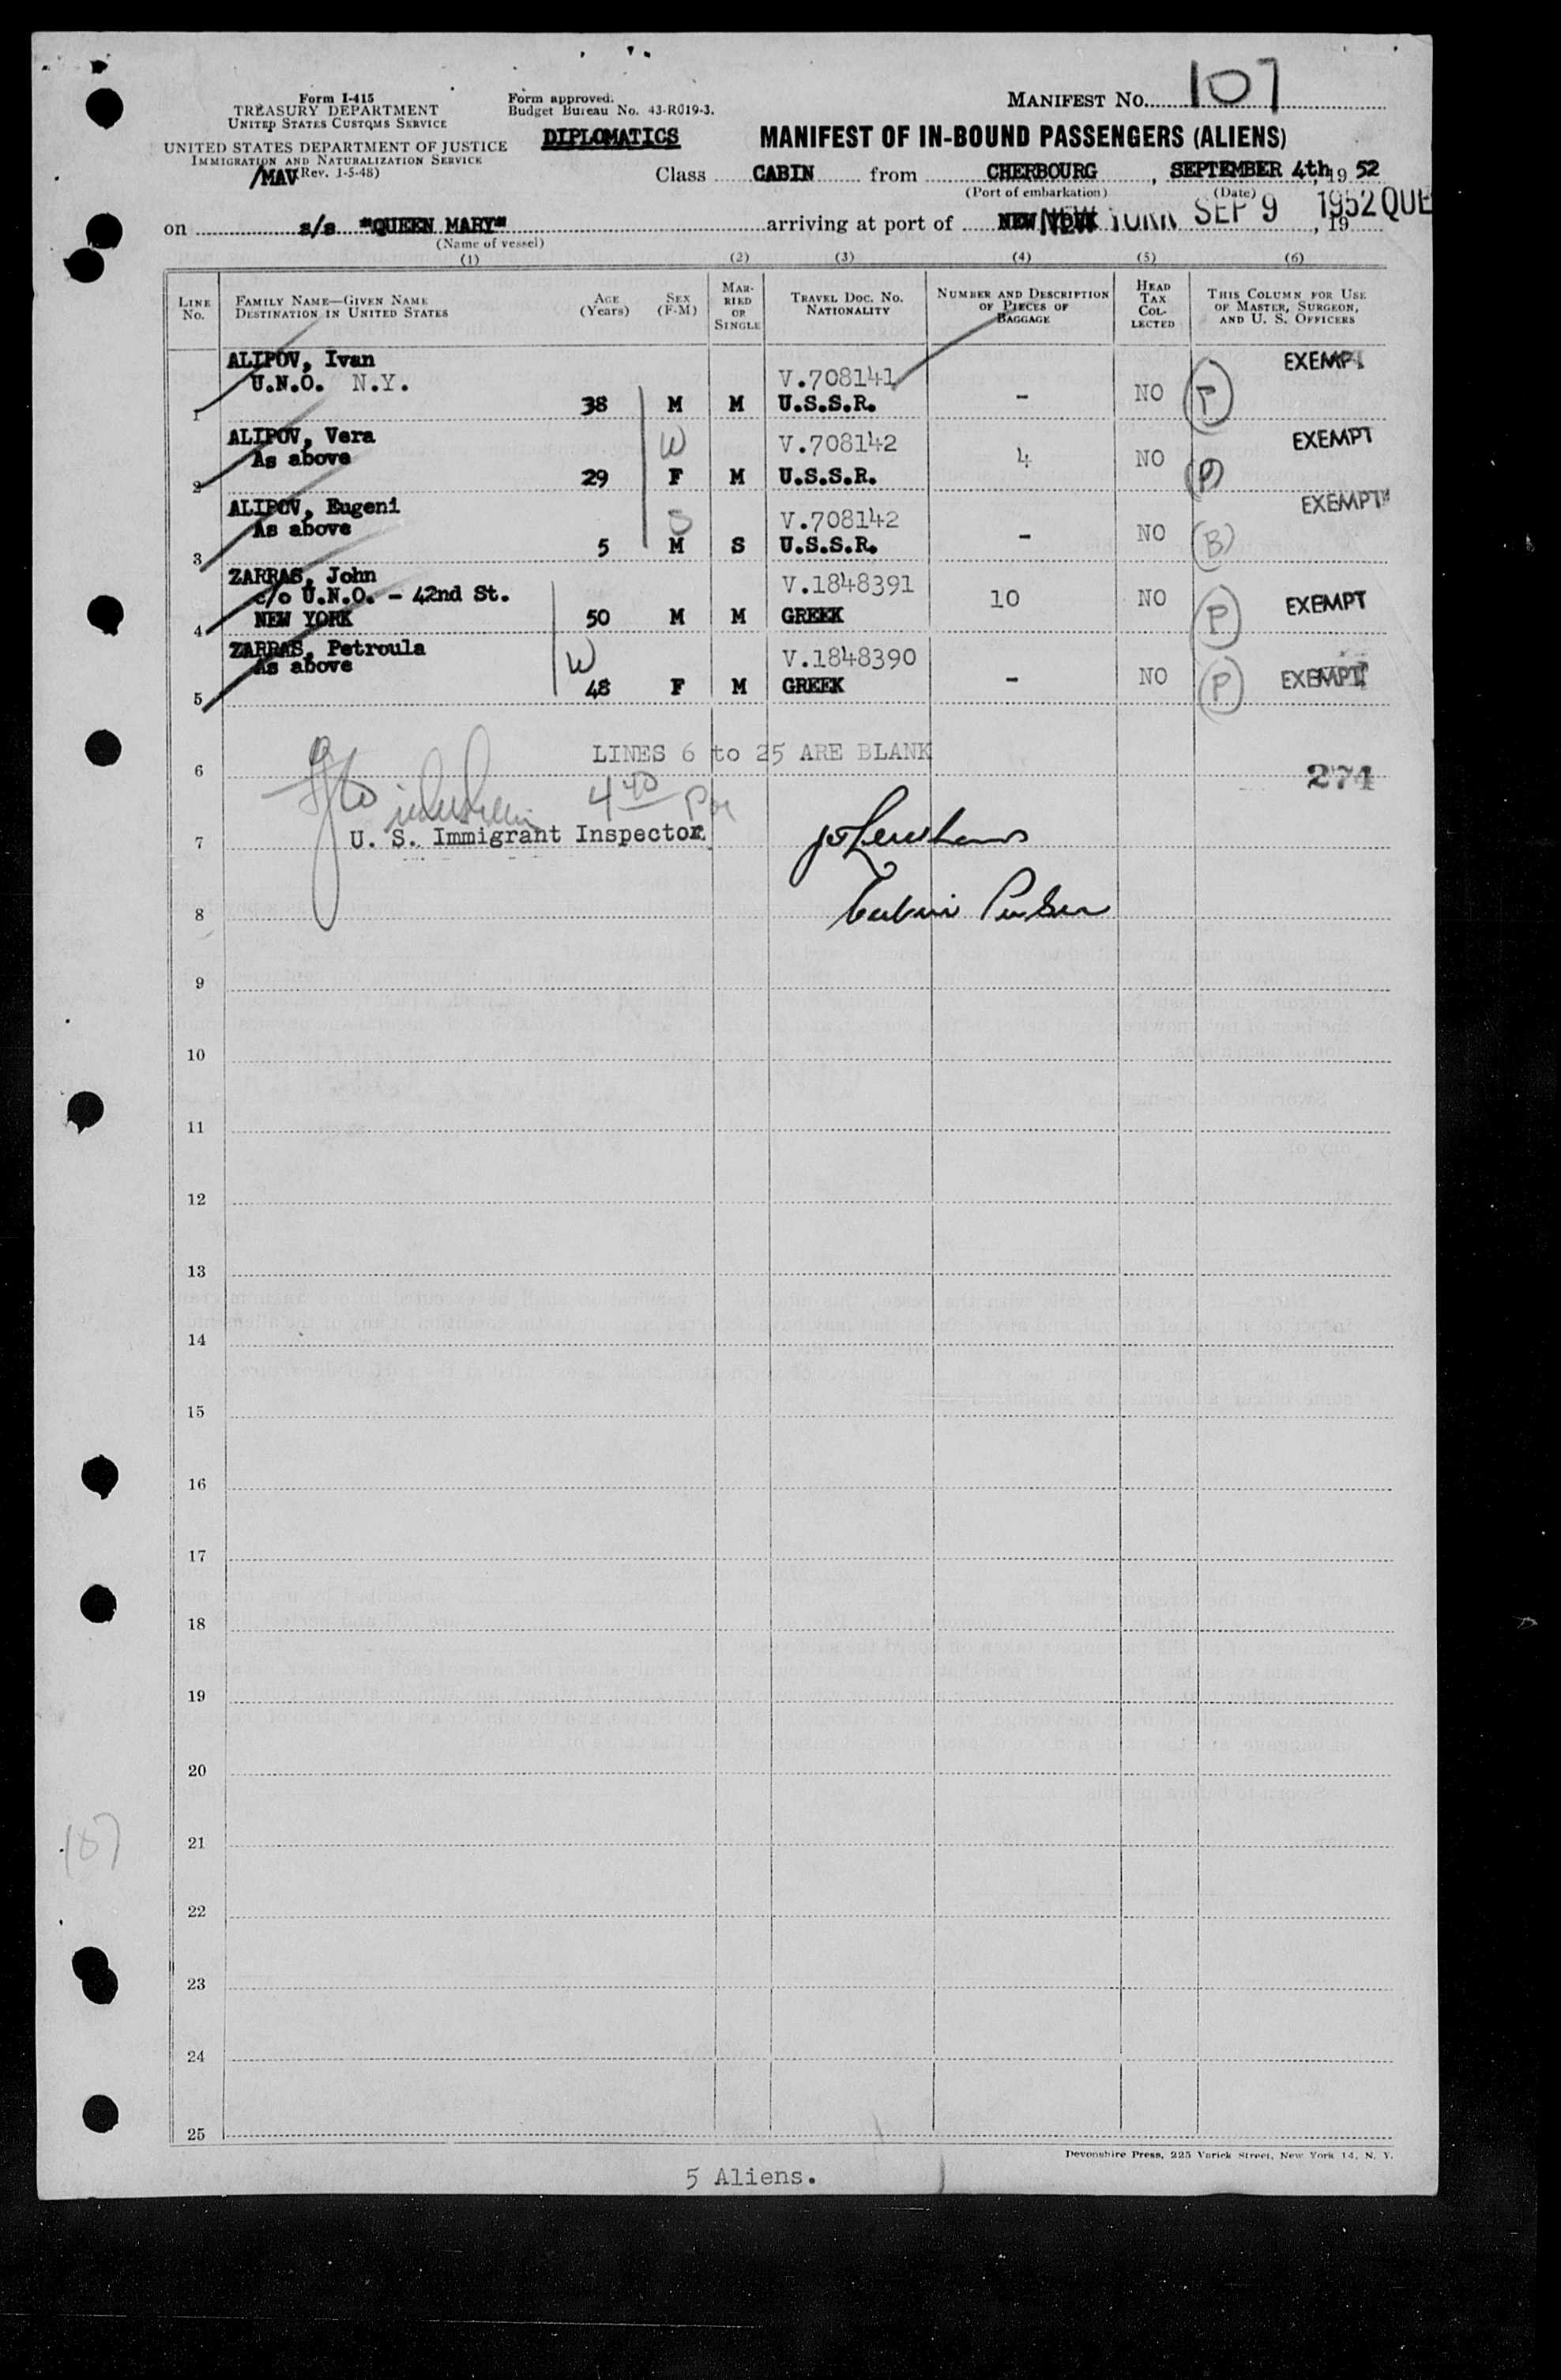 Form I-415
TREASURY DEPARTMENT
UNITED STATES CUSTOMS SERVICE
UNITED STATES DEPARTMENT OF JUSTICE
IMMIGRATION AND NATURALIZATION SERVICE
/MAV Rev. 1-5-48)
Form approved.
Budget Bureau No. 43-R019-3.
DIPLOMATICS
MANIFEST NO. 107
MANIFEST OF IN-BOUND PASSENGERS (ALIENS)
Class CABIN from CHERBOURG, SEPTEMBER 4th, 19 52
(Port of embarkation) (Date)
on s/s "QUEEN MARY" arriving at port of NEW YORK NEW YORK SEP 9 1952 QUE, 19
(Name of vessel)
(1) (2) (3) (4) (5) (6)
LINE NO. FAMILY NAME—GIVEN NAME DESTINATION IN UNITED STATES AGE (YEARS) SEX (F-M) MARRIED OR SINGLE TRAVEL DOC. NO. NATIONALITY NUMBER AND DESCRIPTION OF PIECES OF BAGGAGE HEAD TAX COLLECTED THIS COLUMN FOR USE OF MASTER, SURGEON, AND U. S. OFFICERS
ALIPOV, Ivan EXEMPT
U.N.O. N.Y. V.708141
1 38 M M U.S.S.R. - NO P
ALIPOV, Vera W V.708142 EXEMPT
As above 4 NO P
2 29 F M U.S.S.R.
ALIPOV, Eugeni S V.708142 EXEMPT
As above - NO B
3 5 M S U.S.S.R.
ZARRAS, John V.1848391
c/o U.N.O. - 42nd St. 10 NO P EXEMPT
4 NEW YORK 50 M M GREEK
ZARRAS, Petroula W V.1848390
As above - NO P EXEMPT
5 48 F M GREEK
LINES 6 to 25 ARE BLANK
6 274
4 40 Pm
7 U. S. Immigrant Inspector
8 Purser
9
10
11
12
13
14
15
16
17
18
19
20
21
107
22
23
24
25
Devonshire Press, 225 Varick Street, New York 14, N. Y.
5 Aliens.